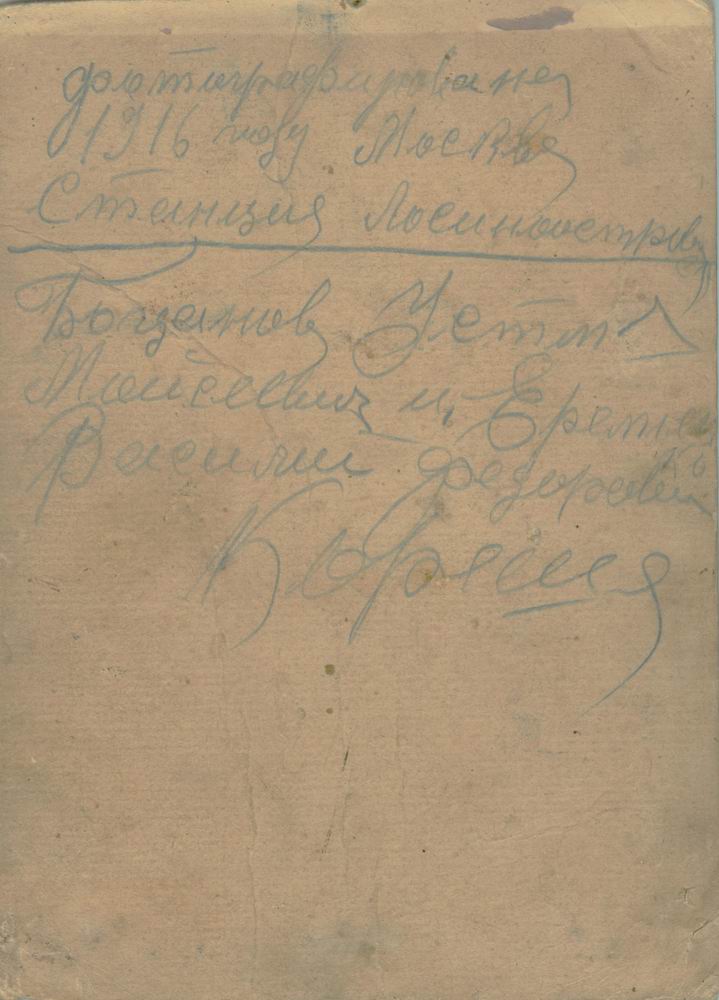 фотографирована
1916 году Москва
Станция Лосиноостров
Богданов Устин
Моисеевич и Еремеев
Василий Федорович